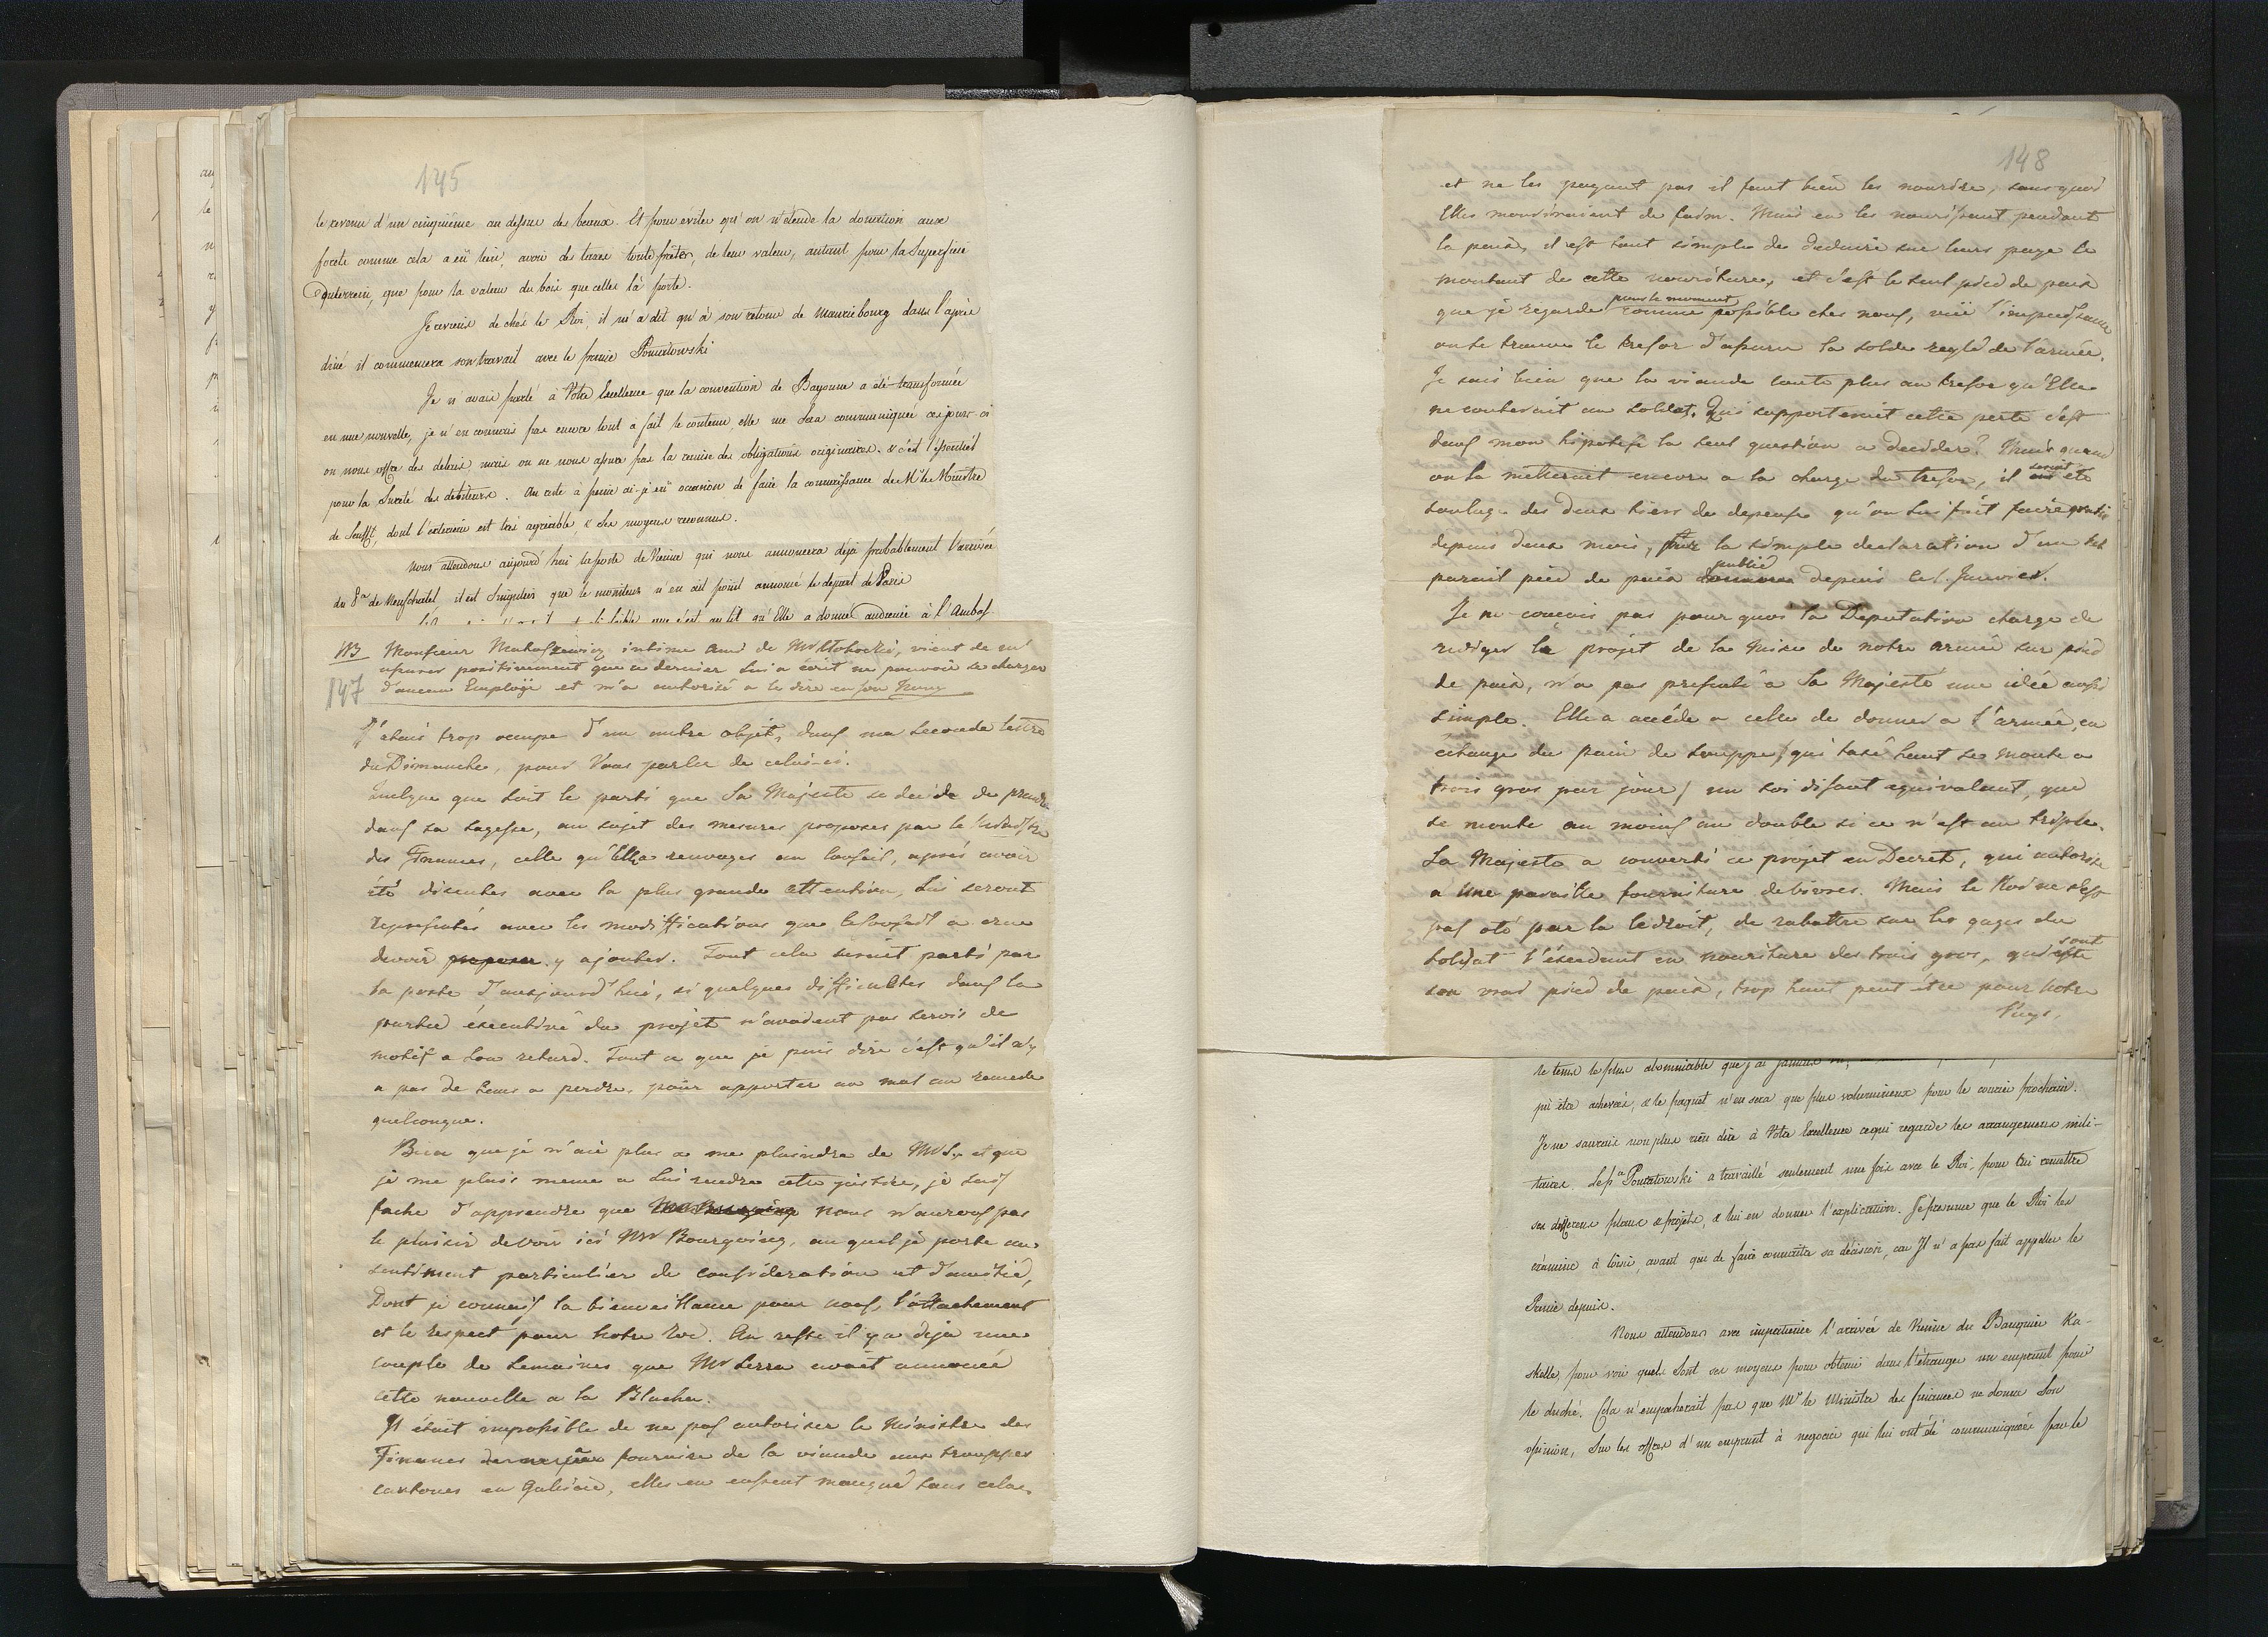 145
le revenu d'un cinquième au dessus des beaux. Et pour eviter qu'on n'étende la donation aux
forêts comme cela a eü lieu, avoir des taxes toute prêtes, de leur valeur, autant pour la Superficie
du terrein, que pour la valeur du bois que celles là porte.
Je reviens de chés le Roi, il m'a dit qu'à son retour de Mauriebourg dans l'après
diné il commencera son travail avec le prince Poniatowski
Je n'avais parlé à Votre Excellence que la convention de Bayonne a été transformée
en une nouvelle, je n'en connais pas encore tout a fait le contenu, elle me sera communiquée ces jours-ci
on nous offre des delais, mais on ne nous assure pas la remise des obligations originaires. & c'est l'essentiel
pour la Sureté des debiteurs. Au reste à peine ai-je eü occasion de faire la connaissance de Mr le Ministre
de Senfft, dont l'exterieur est très agréable, & les moyens reconnus.
Nous attendons aujourd'hui la poste de Vienne qui nous annoncera déjà probablement l'arrivée
du Pce de Neufchatel, il est Singulier que le moniteur n'en ait point annoncé le depart de Paris
qu'Elle a donné audience à l'Ambas-
NB Monsieur Matuszewicz intime ami de Mr Klobocki, vient de m'
assurer positivement que ce dernier lui a écrit ne pouvoir se charger
d'aucun Employë et m'a autorisé a le dire en son Nom
147
J'étais trop occupé d'un autre objet, dans ma seconde lettre
du Dimanche, pour Vous parler de celui-ci.
Quelque que soit le parti que Sa Majesté se decide de prendre
dans sa sagesse, au sujet des mesures proposés par le Ministre
des Finances, celle qu'Elle renvoyes au Conseil, après avoir
été discutés avec la plus grande attention, Lui seront
representés avec les modiffications que le Conseil a crue
devoir proposer y ajouter. Tout cela serait parti par
la poste d'aujourd'hui, si quelques difficultes dans la
partie éxecutive du projet n'avaient pas servis de
motif a son retard. Tout ce que je puis dire c'est qu'il n'y
a pas de tems a perdre, pour apporter au mal un remede
quelconque.
Bien que je n'aie plus a me plaindre de Mr S. et que
je me plais meme a Lui rendre cette justice, je suis
faché d'apprendre que nous n'aurons pas
le plaisir de voir ici Mr Bourgoing, au quel je porte un
sentiment particulier de consideration et d'amitié,
Dont je connais la bienveillance pour nous, l'attachement
et le respect pour notre Roi. Au reste il y a deja une
couple de semaines que Mr Serra avait annoncé
cette nouvelle a la Blacha.
Il était impossible de ne pas autoriser le Ministre des
Finances de fournire de la viande aux trouppes
cantonés en Galicie, elles en eussent manqué sans cela,
148
et ne les payant pas il faut bien les nourrire, sans quoi
Elles mourroraient de faim. Mais en les nourissant pendant
la paix, il est tout simple de deduire sur leurs paye le
montant de cette nouriture, et c'est le seul pied de paix
pour le moment
que je régarde comme possible chez nous, vüe l'impuissance
ou se trouve le tresor d'assurer la solde reglé de l'armée.
Je sais bien que la viande coute plus au tresor qu'Elle
ne couterait au soldat. Qui supporterait cette perte c'est
dans mon hipotese la seul question a decider? Mais quand
serait
on la metterait encore a la charge du tresor, il eut été
soulagé des deux tiers de depense qu'on lui fait faire gratis
depuis deux mois, par la simple declaration d'un tel
publié
pareil pied de paix depuis le 1. Janvier.
Je ne conçois pas pourquoi la Deputation chargé de
rediger le projet de la mise de notre armée sur pied
de paix, n'a pas presenté a Sa Majesté une idée aussi
simple. Elle a accédé a celle de donner a l'armée, en
échange du pain de souppe (qui taxé haut se monte a
trois gros par jour) un soi disant equivalent, que
se monte au moins au double si ce n'est au triple.
Sa Majesté a converti ce projet en Decret, qui autorise
a une pareille fourniture de vivres. Mais le Roi ne s'est
pas oté par la le droit, de rabattre sur les gages du
sont
soldat l'éxcedent en nouriture des trois gros, qui este
son vrai pied de paix, trop haut peut etre pour notre
Pays,
le tems le plus abominable que j'ai jamais vu,
pü être achevés, & le paquet n'en sera que plus volumineux pour le courier prochain.
Je ne saurais non plus rien dire à Votre Excellence ce qui regarde les arrangemens mili-
taires. Le pce Poniatowski a travaillé seulement une fois avec le Roi, pour Lui remettre
ses differens plans & projets, & lui en donner l'explication. Je presume que le Roi les
éxamine à loisir, avant que de faire connaitre sa décision, car Il n'a pas fait appeller le
Prince depuis.
Nous attendons avec impatience l'arrivée de Vienne du Banquier Ka-
skelle, pour voir quels sont ses moyens pour obtenir dans l'étranger un emprunt pour
le duché. Cela n'empecherait pas que Mr le Ministre des finances ne donne Son
opinion, Sur les offres d'un emprunt à negocier qui lui ont été communiquées par le